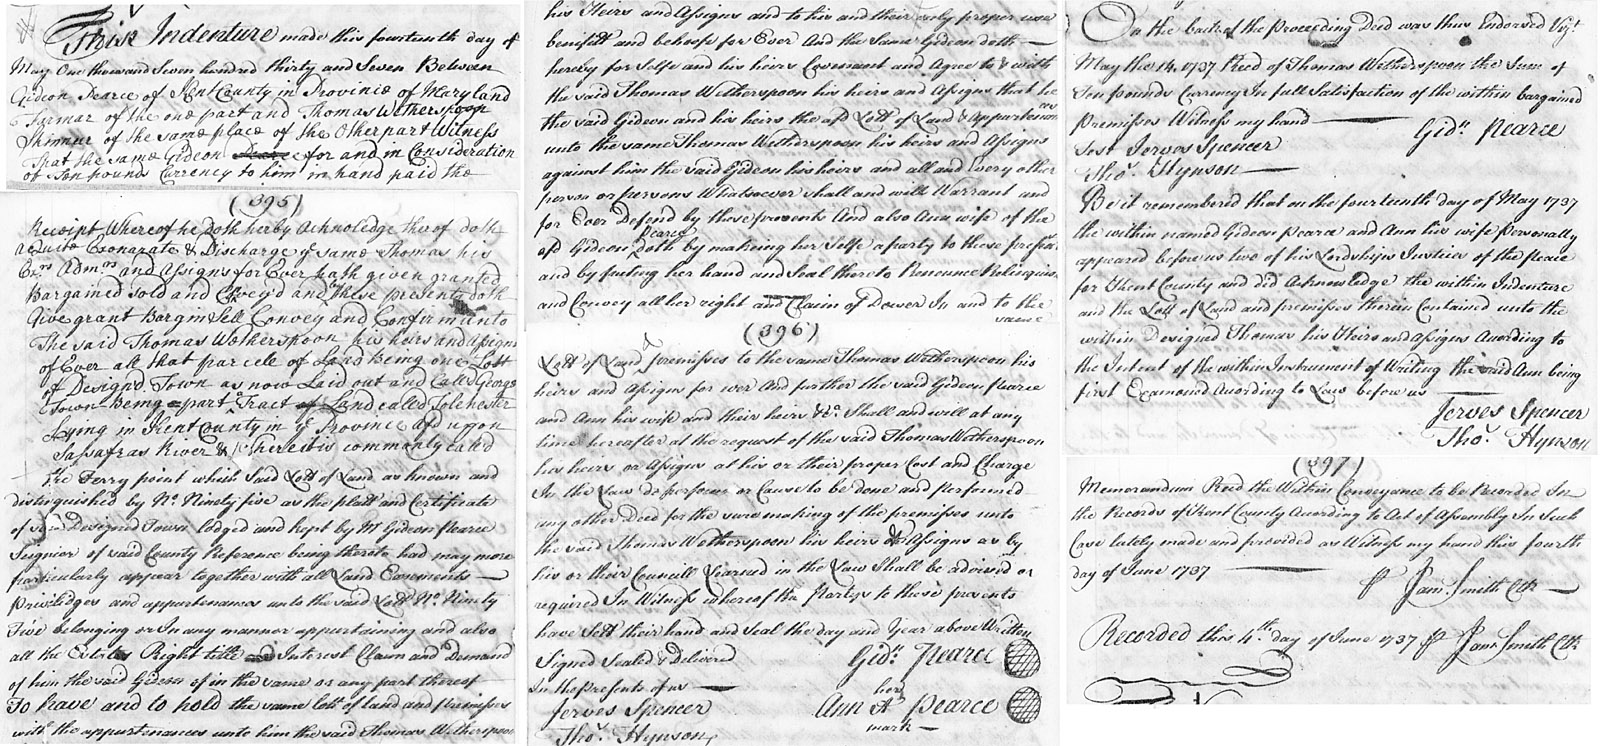 This Indenture made this fourteenth day of
May One thousand Seven hundred thirty and Seven Between
Gideon Pearce of Kent County in Province of Maryland
Farmar of the one part and Thomas Wetherspoon
Skinner of the same place of the Other part Witness
That the same Gideon Pearce for and in Consideration
of Ten pounds Currency to him in hand paid the
(395)
Receipt Whereof he doth herby Acknoledge thereof doth
acquite Exonarate & Discharge ye same Thomas his
Exrs Admrs and Assigns for Ever hath given granted
Bargained sold and Convey'd and These presents doth
Give grant Bargin Sell Convey and Confirm unto
The said Thomas Wetherspoon his heirs and Assigns
of Ever all that parcele of Land being one Lott
of Design'd Town as now Laid out and Called Georg
Town Being part of Tract of Land called Tolchester
Lying in Kent County in ye Province afd upon
Sassafras River & Where it is commonly called
the Ferry point which Said Lott of Land as known and
distinguished by No. Ninety five as the platt and Certificate
of said Designed Town lodged and kept by Mr Gideon Pearce
Seignior of said County Reference being thereto had may more
particularly appear together with all Land Easments
Priviledges and appurtenances unto the said Lott No. Ninety
Five belonging or In any manner appurtaining and also
all the Estates Right title and Interest Claim and Demand
of him the said Gideon of in the same or any part thereof
To have and to hold the same lott of land and premisses
with the appurtenances unto him the said Thomas Wetherspoon
his Heirs and Assigns and to his and their only proper use
benifitt and behoofe for Ever And the Same Gideon doth
hereby for Selfe and his heirs Covenant and Agree to & with
the said Thomas Wetherspoon his heirs and Assigns that he
the said Gideon and his heirs the afd Lott of Land & Appurtenances
unto the same Thomas Wetherspoon his heirs and Assigns
against him the said Gideon his heirs and all and Every other
person or persons Whatsoever shall and will Warrant and
for Ever Defend by these presents And also Ann wife of the
afd Gideon Pearce doth by making her Selfe a party to these presents
and by putting her hand and Seal thereto Renounce Relinquish
and Convey all her right and Claim of Dower In and to the
same
(396)
Lott of Land & premisses to the same Thomas Wetherspoon his
heirs and Assigns for ever And further the said Gideon Pearce
and Ann his wife and their heirs &c. Shall and will at any
time hereafter at the request of the said Thomas Wetherspoon
his heirs or Assigns at his or their proper Cost and Charge
In the Law do perform or Cause to be done and performed
any other Deed for the sure making of the premisses unto
the said Thomas Wetherspoon his heirs & Assigns as by
his or their Councill Learned in the Law Shall be advised or
required In Witness whereof the Partys to these presents
have Sett their hand and Seal the day and Year above Written
Signed Sealed & Delivered Gidn Pearce
In the Presents of us her
Jerves Spencer Ann A Pearce
Thos. Hynson mark
On the back of the Proceeding Deed was thus Endorsed Vizt
May the 14. 1737 Recd of Thomas Wetherspoon the Sum of
Ten pounds Currency In full Satisfaction of the within bargained
Premisses Witness my hand Gidn Pearce
Test Jerves Spencer
Thos. Hynson
Be it remembered that on the fourteenth day of May 1737
the within named Gideon Pearce and Ann his wife Personally
appeared before us two of his Lordships Justice of the peace
for Kent County and did Acknowledge the within Indenture
and the Lott of Land and premisses therein Contained unto the
within Designed Thomas his Heirs and Assigns Acording to
the Intent of the within Instrument of Writing the said Ann being
first Examoned Acording to Law before us
Jerves Spencer
Thos. Hynson
(397)
Memorandum Recd the Within Conveyance to be Recorded In
the Records of Kent County According to Act of Assembly In Such
Case lately made and provided as Witness my hand this fourth
day of June 1737 ⅌ Jam. Smith Clk
Recorded this 4th. day of June 1737 ⅌ Jam Smith Clk